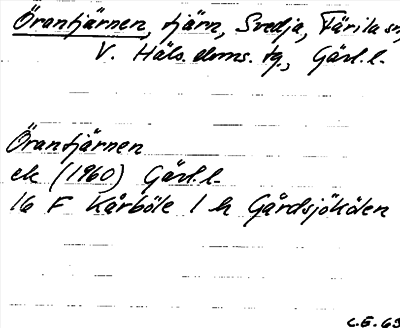 Örantjärnen, tjärn, Svedja, Färila sn,
V. Häls. doms. tg., Gävl. l.
Örantjärnen
ek (1960) Gävl. l.
16 F Kårböle 1 h Gårdsjökölen
C.E. 63